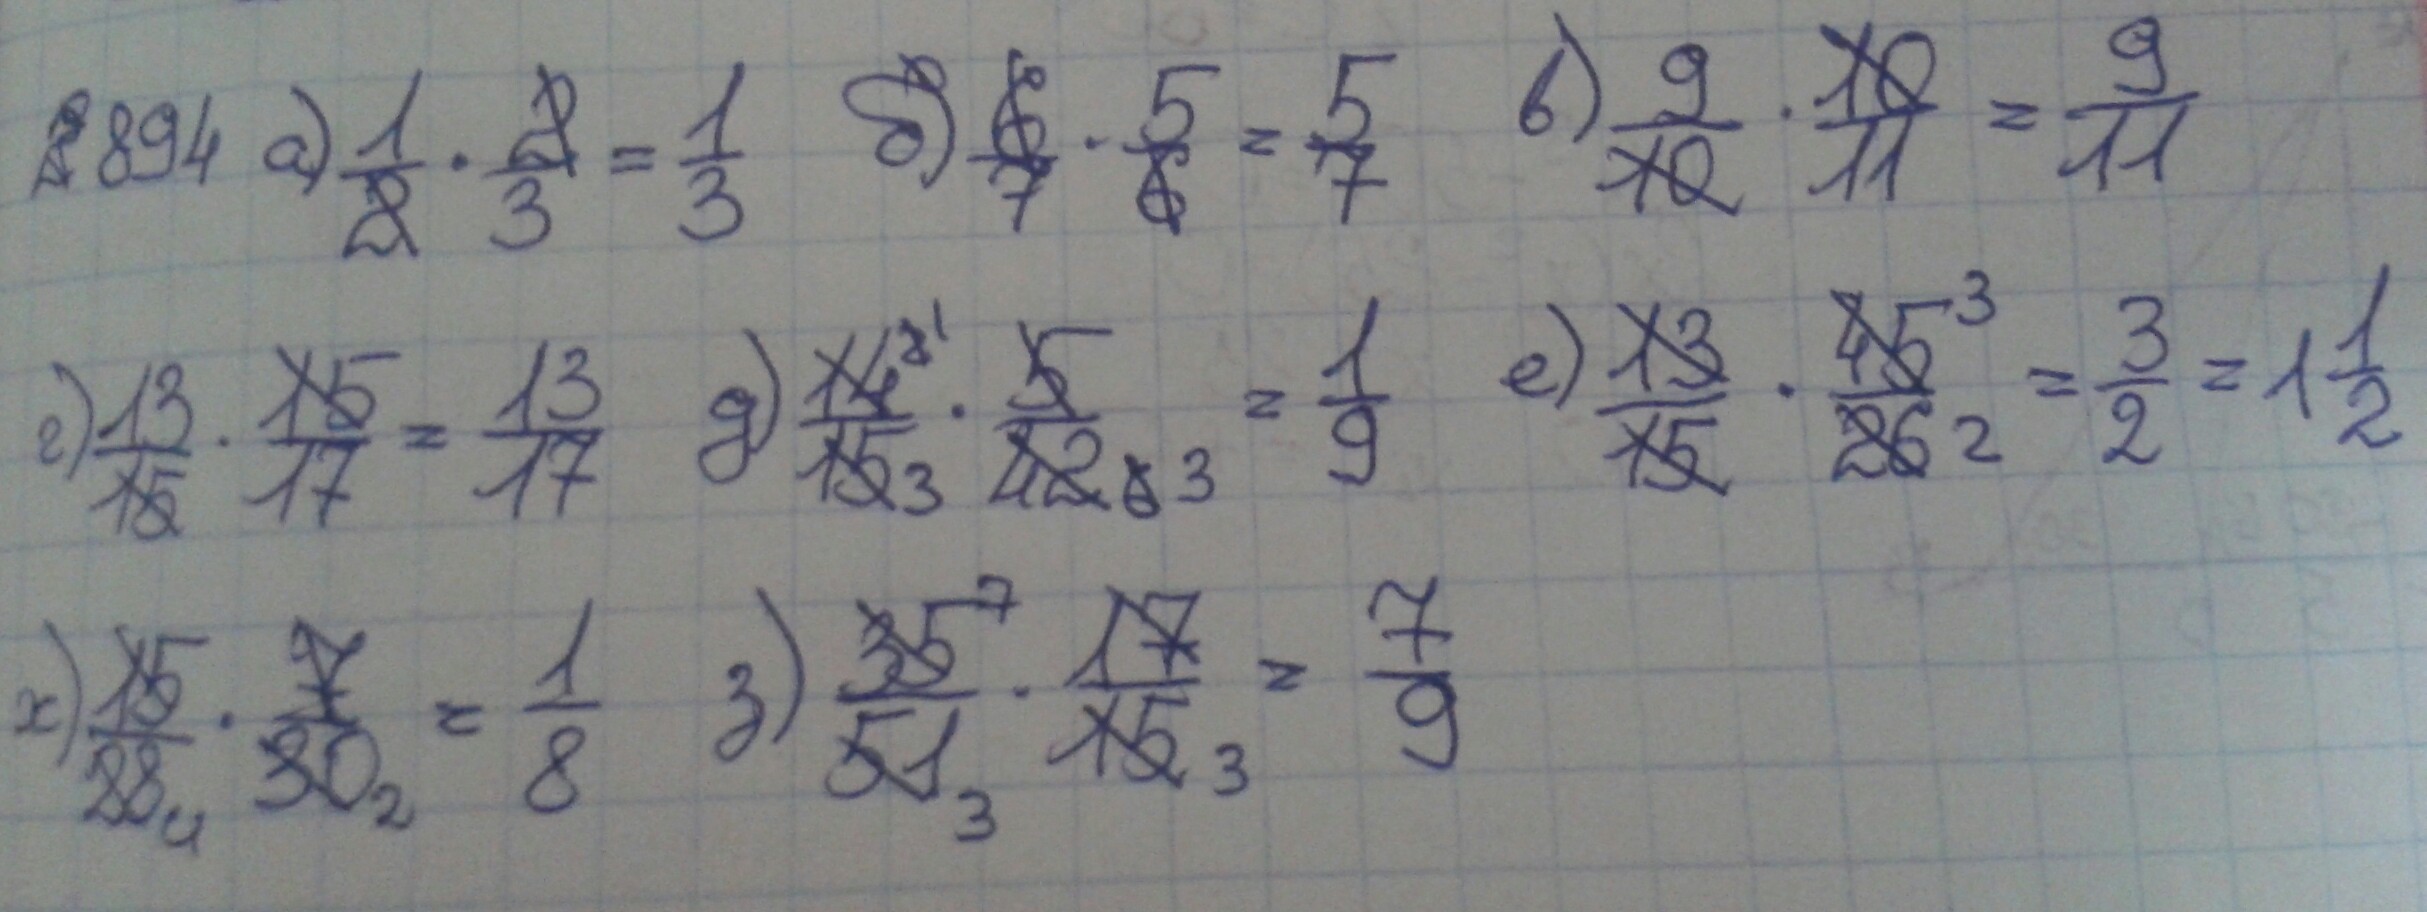 894 а) 1/2 · 2/3 = 1/3 б) 6/7 · 5/6 = 5/7 в) 9/10 · 10/11 = 9/11
г) 13/15 · 15/17 = 13/17 д) 14/15 3 · 5/42 3 = 1/9 е) 13/15 · 45 3/26 2 = 3/2 = 1 1/2
ж) 15/28 4 · 7/30 2 = 1/8 з) 35 7/51 3 · 17/15 3 = 7/9